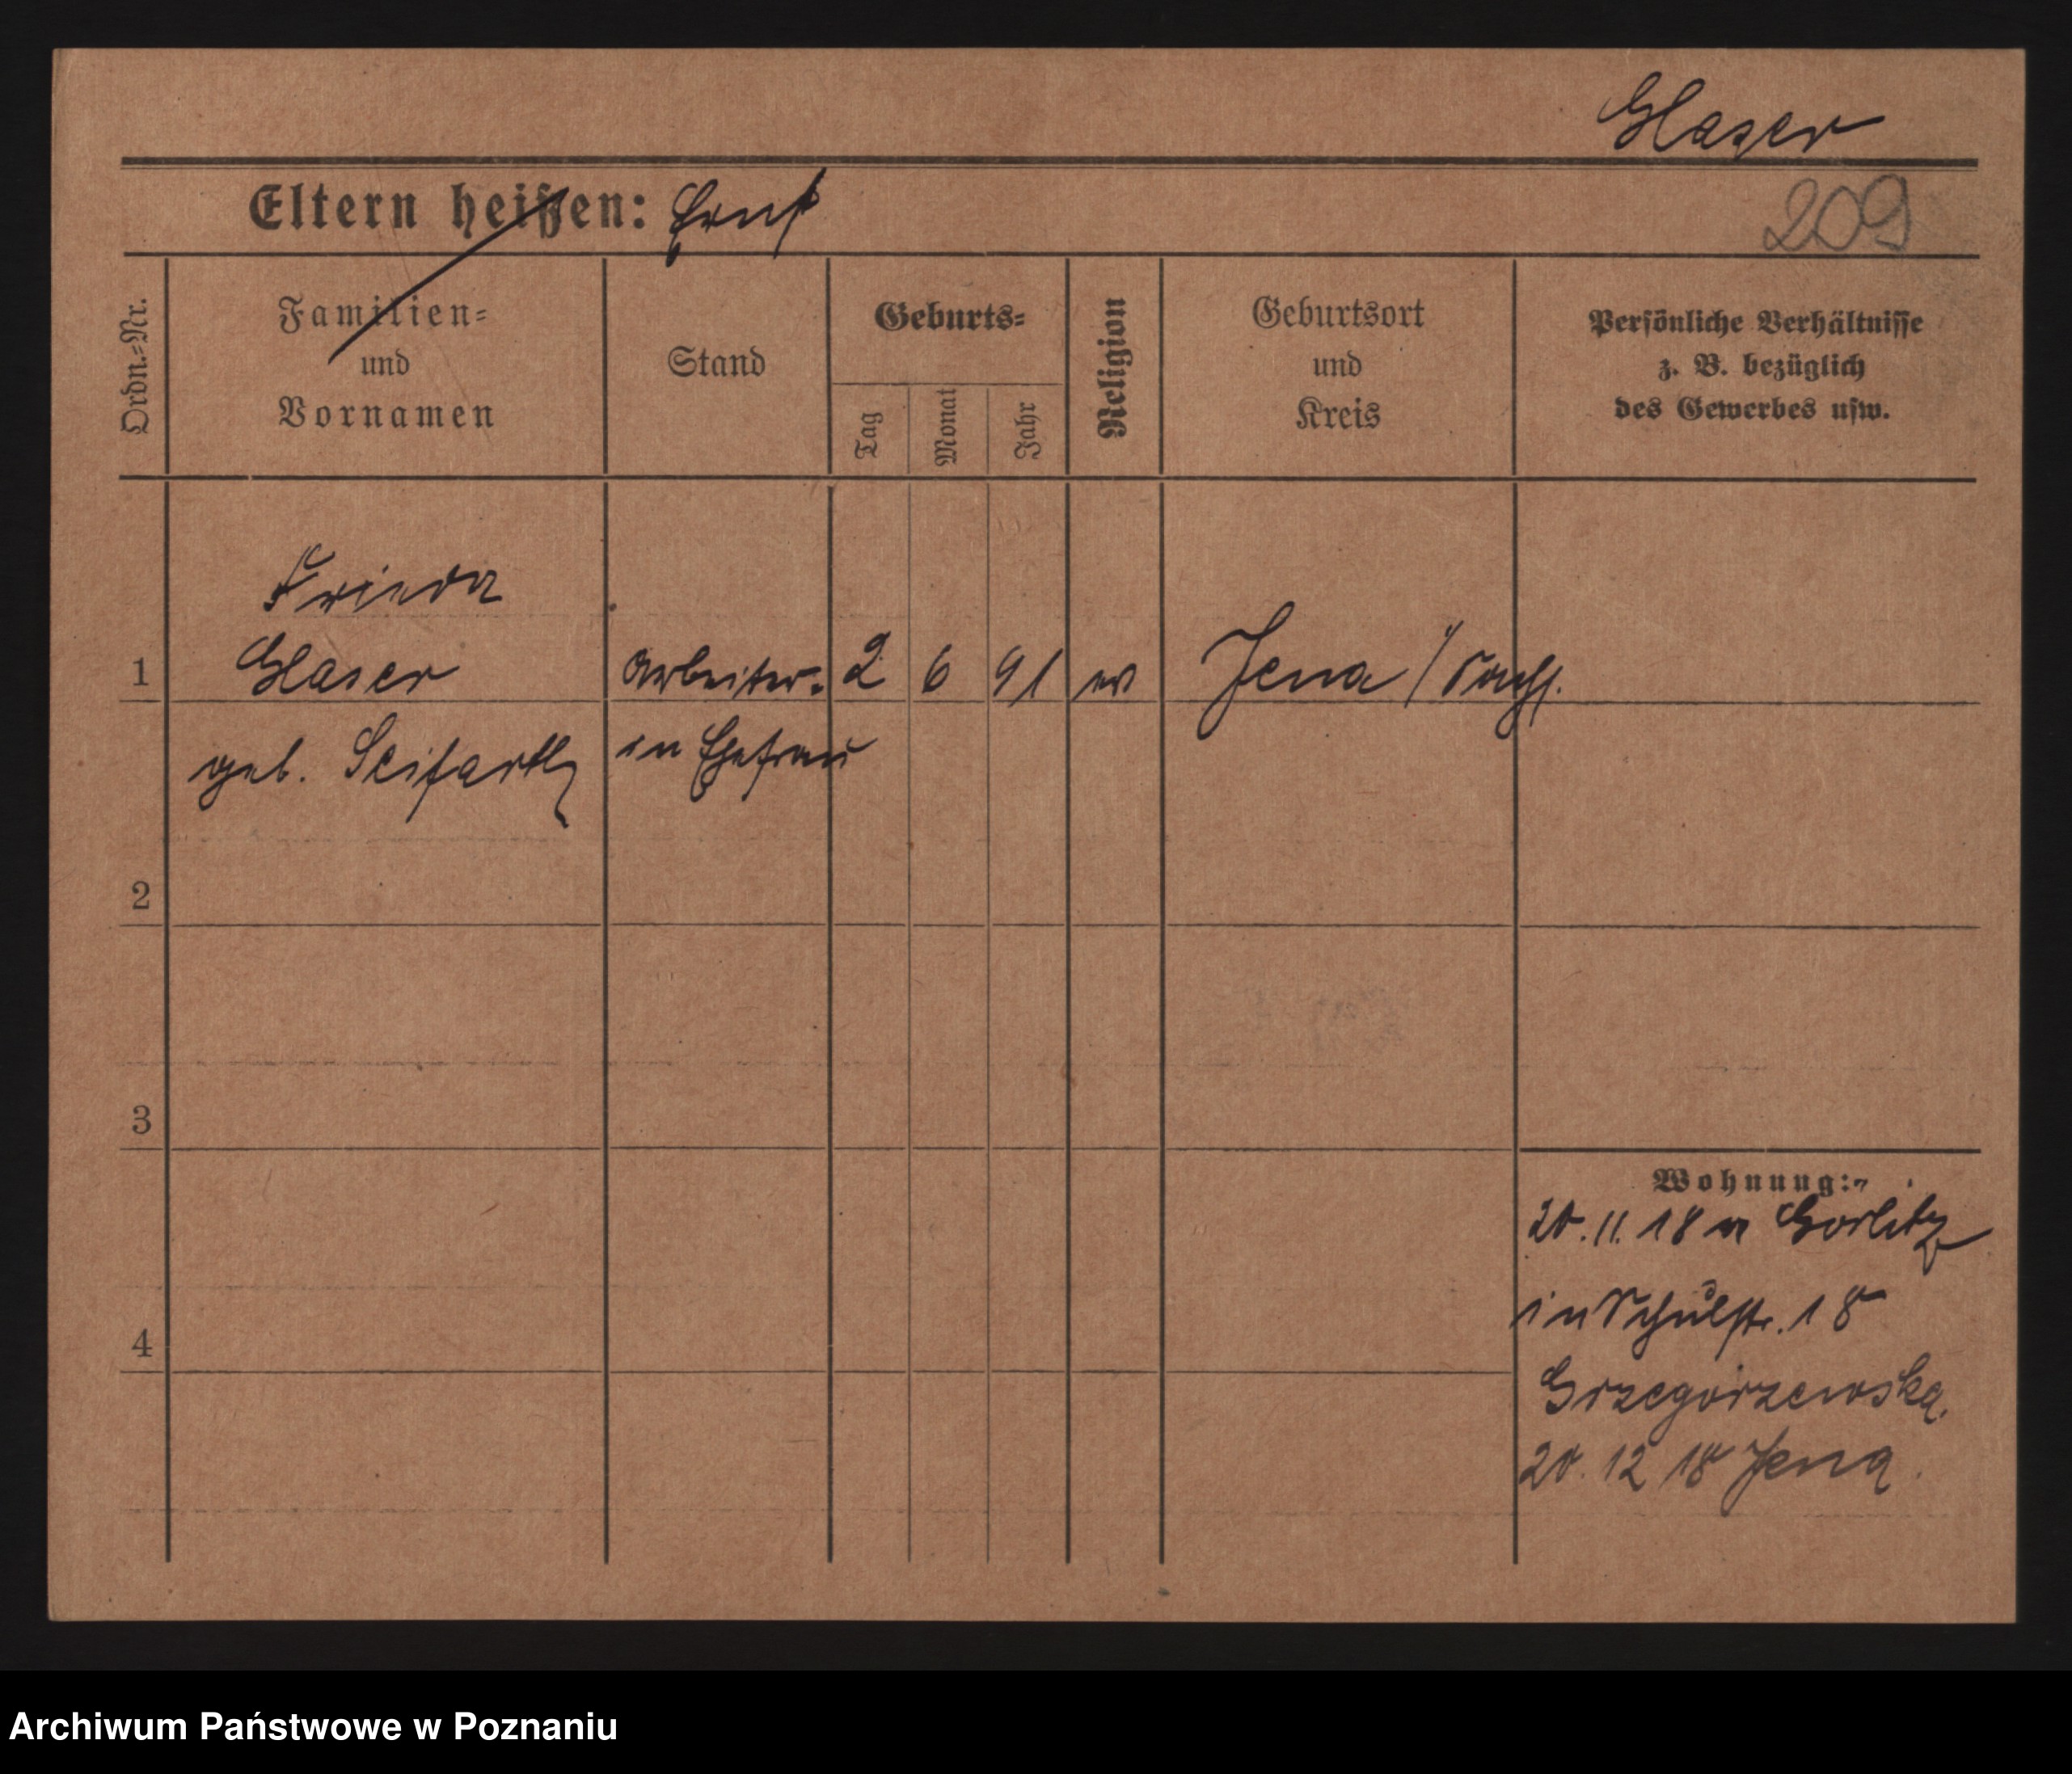 Glaser
Eltern heißen: Ernst
209
Ordn.-Nr.
Familien-
und
Vornamen
Stand
Geburts-
Tag
Monat
Jahr
Religion
Geburtsort
und
Kreis
Persönliche Verhältnisse
z. B. bezüglich
des Gewerbes usw.
Frieda
1 Glaser Arbeiter- 2 6 91 ev Jena /Sachs.
geb. Seifarth in Ehefrau
2
3
Wohnung:
20. 11. 18 a Görlitz
in Schulstr. 18
4
Grzegorzewska.
20. 12 18 Jena.
Archiwum Państwowe w Poznaniu